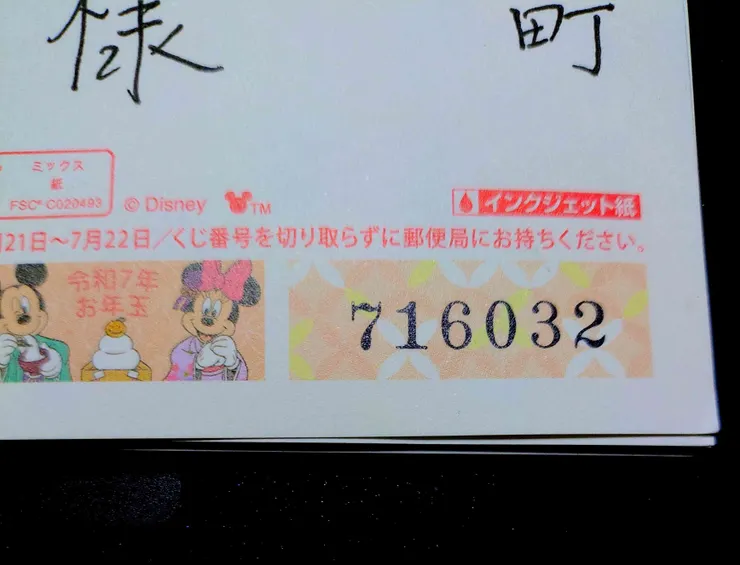 様 町
ミックス
紙
FSC® C020493
© Disney TM
インクジェット紙
月21日～7月22日／くじ番号を切り取らずに郵便局にお持ちください。
令和7年
お年玉
716032